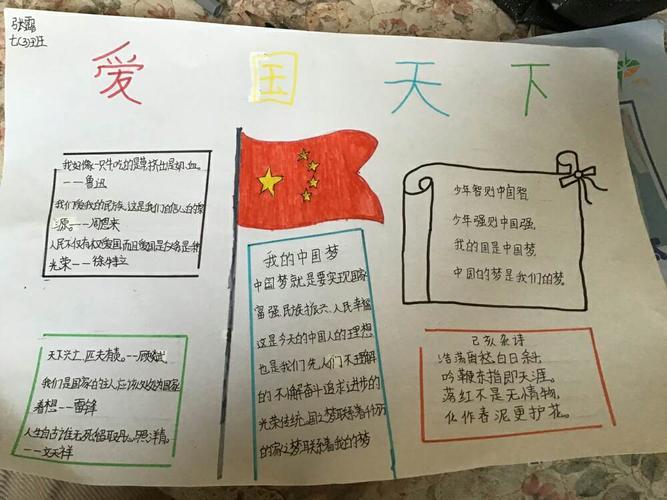 张露
七(3)班
爱国天下
我好像一只牛吃的是草挤出是奶、血。
——鲁迅
我们爱我的民族,这是我们的信心的
源。——周恩来
人民不仅有权爱国而且爱国是义务是
光荣——徐特立
天下兴亡,匹夫有责。——顾炎武
我们是国家的主人,应该处处为国家
着想——雷锋
人生自古谁无死留取丹心照汗精。
——文天祥
我的中国梦
中国梦就是要实现国家
富强、民族振兴、人民幸福
这是今天的中国人的理想
也是我们先人们不理解
的不懈奋斗追求进步的
光荣传统国之梦联系着千万
的家之梦联系着我的梦
少年智则中国智
少年强则中国强,
我的国是中国梦
中国的梦是我们的梦。
己亥杂诗
浩荡离愁白日斜
吟鞭东指即天涯。
落红不是无情物,
化作春泥更护花。